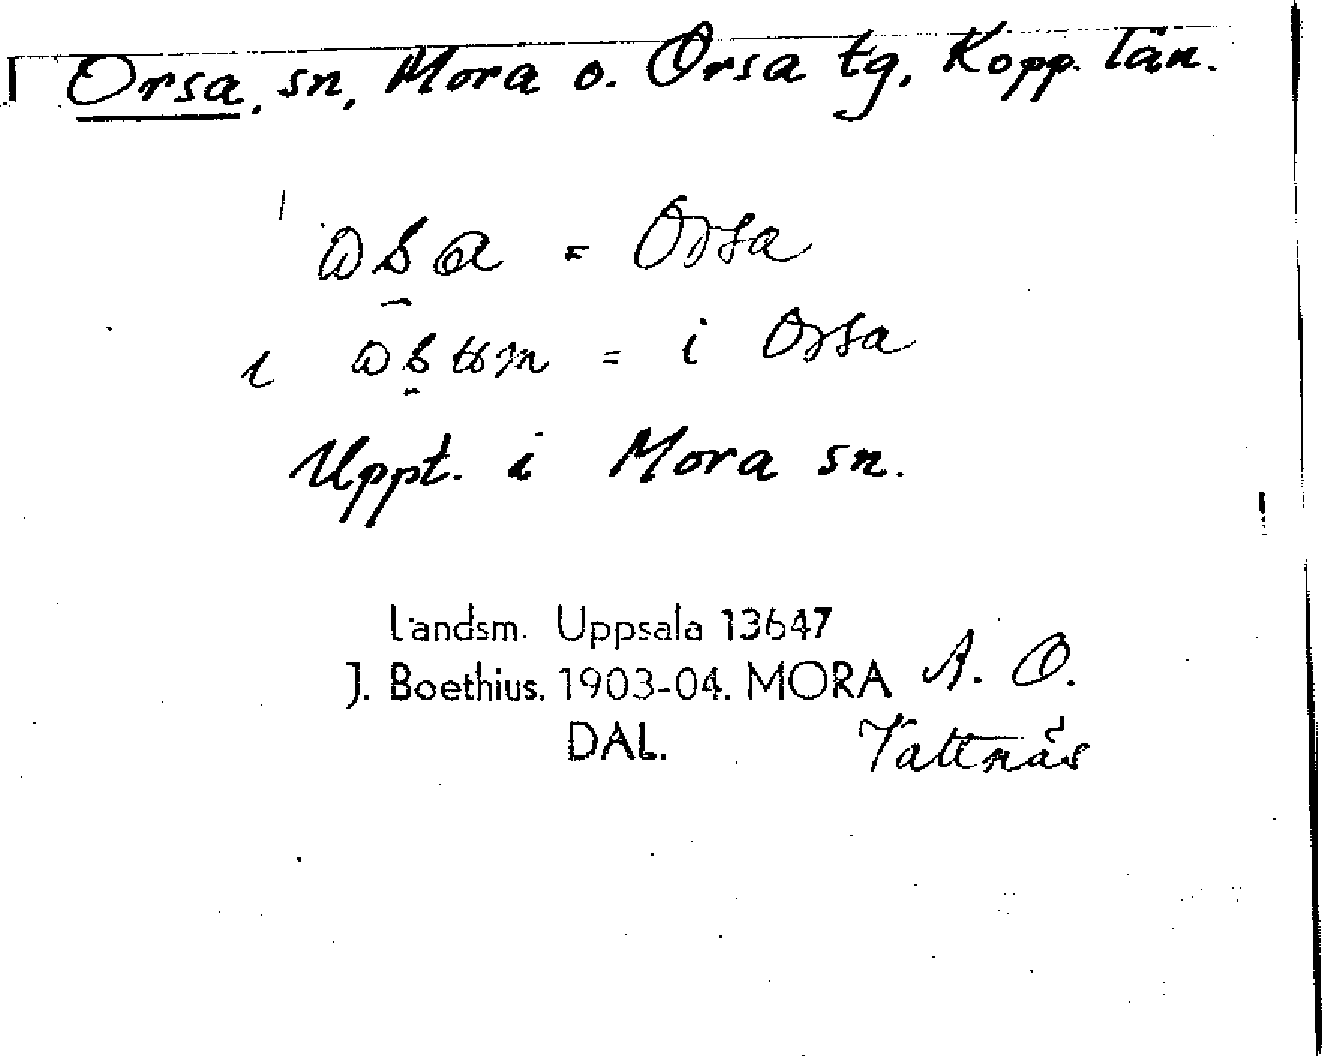 Orsa, sn, Mora o. Orsa tg, Kopp. län.
= Orsa
i = i Orsa
Uppt. i Mora sn.
Landsm. Uppsala 13647
J. Boethius. 1903-04. MORA A. O.
DAL. Vattnäs